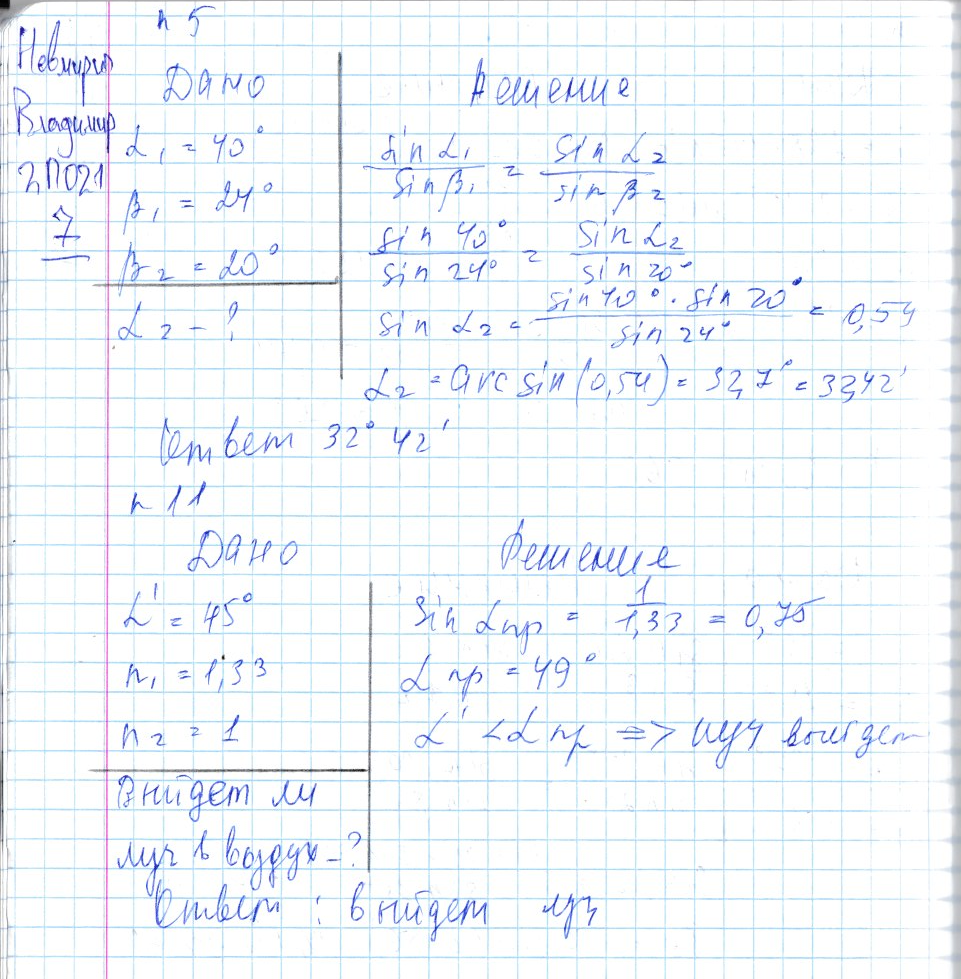 n 5
Невмирю
Владимир
2П021
7
Дано
α₁ = 40°
β₁ = 24°
β₂ = 20°
α₂ - ?
Решение
sin α₁ / sin β₁ = sin α₂ / sin β₂
sin 40° / sin 24° = sin α₂ / sin 20°
sin α₂ = sin 40° · sin 20° / sin 24° = 0,54
α₂ = arcsin(0,54) = 32,7° = 32,42'
Ответ 32° 42'
n 11
Дано
α' = 45°
n₁ = 1,33
n₂ = 1
Выйдет ли
луч в воздух - ?
Решение
sin αпр = 1 / 1,33 = 0,75
α пр = 49°
α' < α пр => луч выйдет
Ответ : выйдет луч